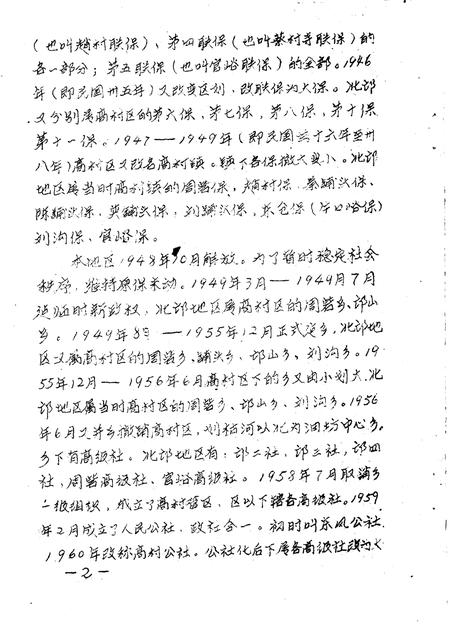 (也叫赵村联保)、第四联保(也叫蔡村寺联保)的
各一部分；第五联保(也叫官峪联保)的全部。1946
年(即民国卅五年)又改变区划，改联保为大保。北邙
又分别属高村区的第六保，第七保，第八保，第十保
第十一保。1947——1949年(即民国三十六年至卅
八年)高村区又改名高村镇。镇下各保微大变小。北邙
地区属当时高村镇的周砦保，赵村保，秦铺头保，
陈铺头保，樊铺头保，刘铺头保，东仓保(牛口峪保)
刘沟保，官峪保。
本地区1948年10月解放。为了暂时稳定社会
秩序，维持原保未动。1949年3月——1949月7月
是临时新政权，北邙地区属高村区的周砦乡、邙山
乡。1949年8月——1955年12月正式定乡，北邙地
区又属高村区的周砦乡、铺头乡、邙山乡、刘沟乡。19
55年12月——1956年6月高村区下的乡又由小划大，北
邙地区属当时高村区的周砦乡、邙山乡、刘沟乡。1956
年6月又并乡撤销高村区，划枯河以北为油坊中心乡。
乡下有高级社。北邙地区有：邙二社，邙三社，邙四
社，周砦高级社、官峪高级社。1958年7月取消乡
一级组织，成立了高村管区，区以下辖各高级社。1959
年2月成立了人民公社，政社合一。初时叫东风公社
1960年改称高村公社。公社化后下属各高级社改为大
—2—